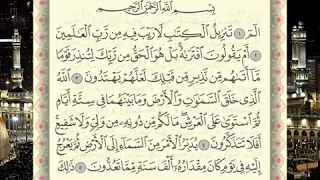 بِسْمِ اللَّهِ الرَّحْمَٰنِ الرَّحِيمِ
الٓمٓ ۝١ تَنزِيلُ الْكِتَٰبِ لَا رَيْبَ فِيهِ مِن رَّبِّ الْعَٰلَمِينَ
۝٢ أَمْ يَقُولُونَ افْتَرَىٰهُ ۚ بَلْ هُوَ الْحَقُّ مِن رَّبِّكَ لِتُنذِرَ قَوْمًا
مَّآ أَتَىٰهُم مِّن نَّذِيرٍ مِّن قَبْلِكَ لَعَلَّهُمْ يَهْتَدُونَ ۝٣ اللَّهُ
الَّذِي خَلَقَ السَّمَٰوَٰتِ وَالْأَرْضَ وَمَا بَيْنَهُمَا فِي سِتَّةِ أَيَّامٍ
ثُمَّ اسْتَوَىٰ عَلَى الْعَرْشِ ۖ مَا لَكُم مِّن دُونِهِۦ مِن وَلِيٍّ وَلَا شَفِيعٍ ۚ
أَفَلَا تَتَذَكَّرُونَ ۝٤ يُدَبِّرُ الْأَمْرَ مِنَ السَّمَآءِ إِلَى الْأَرْضِ ثُمَّ يَعْرُجُ
إِلَيْهِ فِي يَوْمٍ كَانَ مِقْدَارُهُۥٓ أَلْفَ سَنَةٍ مِّمَّا تَعُدُّونَ ۝٥ ذَٰلِكَ